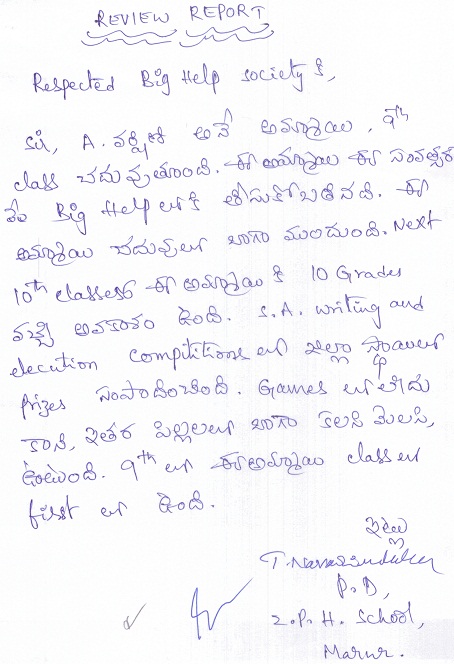 REVIEW REPORT
Respected Big Help society కి,
Sir, A. అనే అమ్మాయి, 9th
class చదువుతూంది. ఈ అమ్మాయి ఈ సంవత్సర
మే Big Help లోకి తీసుకోబడినది. ఈ
అమ్మాయి చదువులో బాగా ముందుంది. Next
10th classలో ఈ అమ్మాయి కి 10 Grades
వచ్చే అవకాశం ఉంది. S.A. writing and
elecution compititions లో జిల్లా స్థాయిలో
prizes సంపాదించింది. Games లో లేదు
కాని, ఇతర పిల్లలతో బాగా కలసి మెలసి,
ఉంటుంది. 9th లో ఈ అమ్మాయి class లో
first లో ఉంది.
ఇట్లు
P.D,
Z.P.H. School,
Marur.